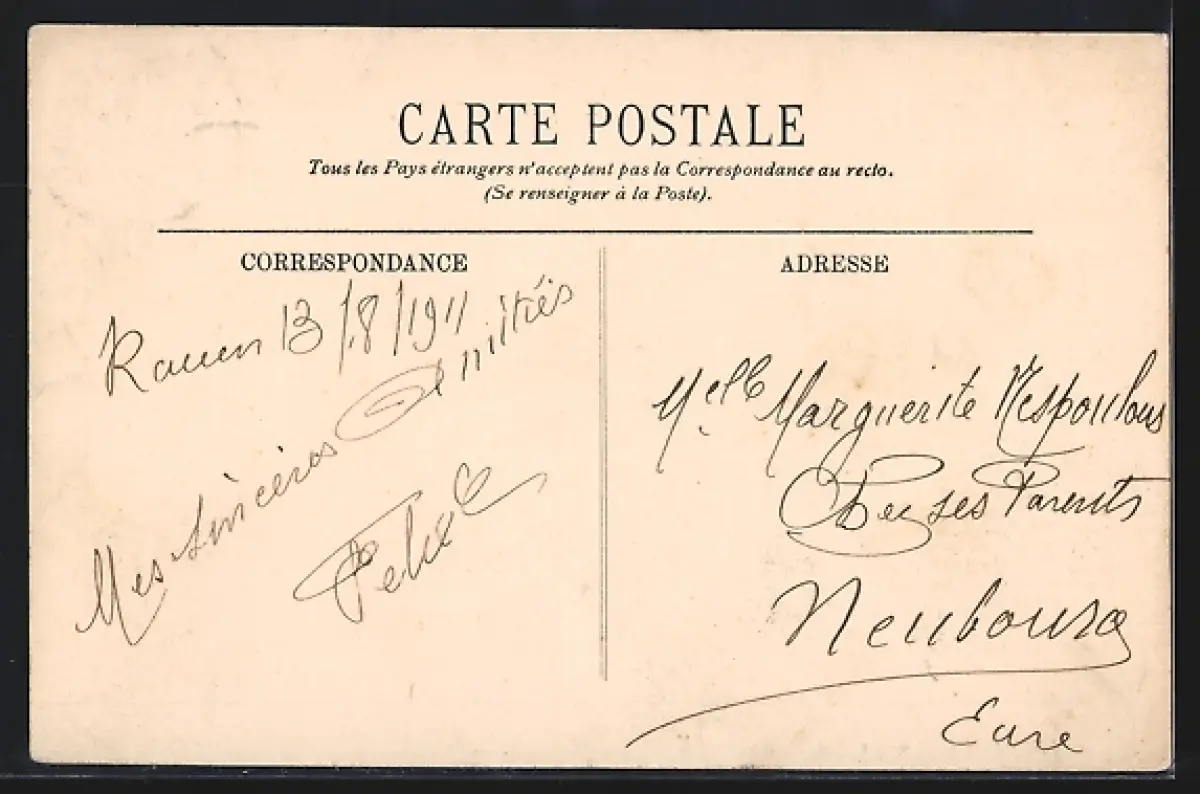 CARTE POSTALE
Tous les Pays étrangers n'acceptent pas la Correspondance au recto.
(Se renseigner à la Poste).
CORRESPONDANCE
Rouen 13/8/1911
Mes sincères Amitiés
ADRESSE
Melle Marguerite Nespoulous
Chez ses Parents
Neubourg
Eure